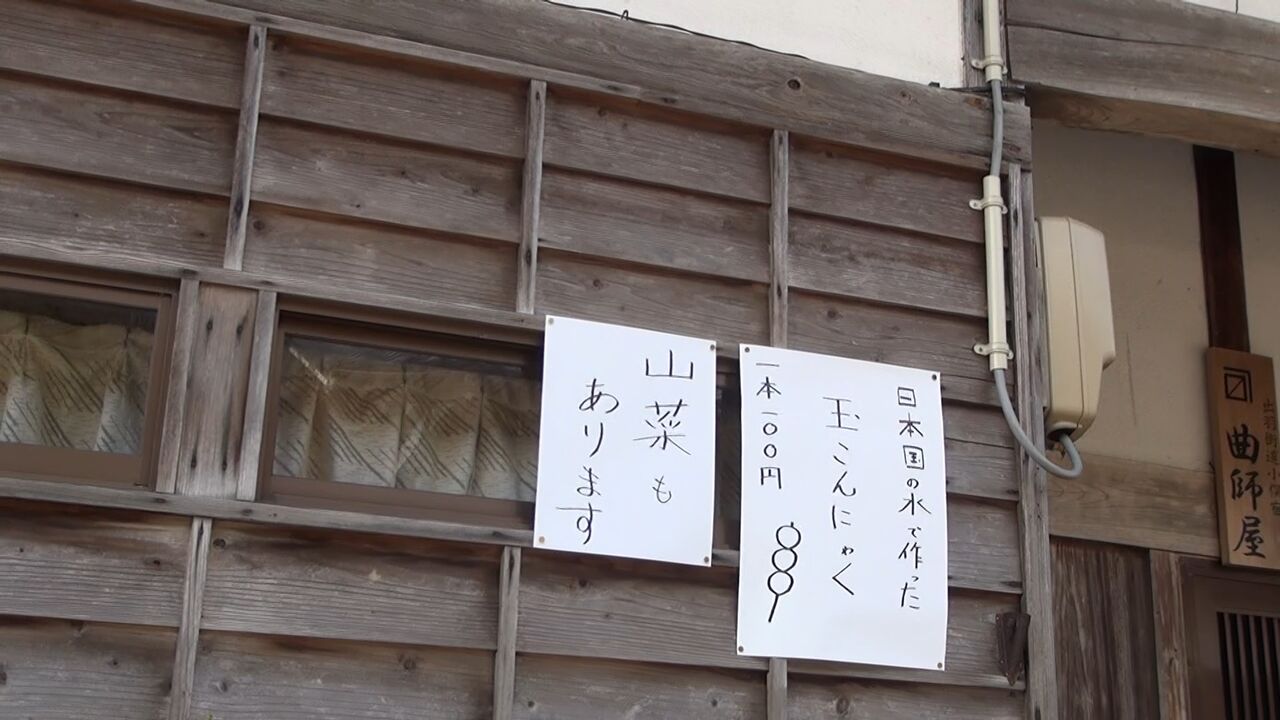 日本国の水で作った
玉こんにゃく
一本一〇〇円
山菜も
あります
曲師屋